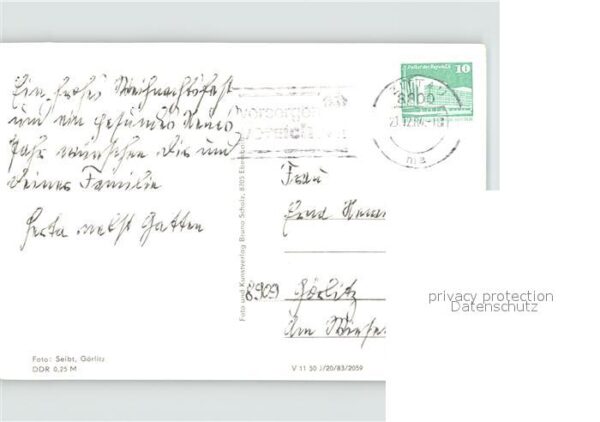 Ein frohes Weihnachtsfest
und ein gesundes Neues
Jahr wünschen Dir und
Deiner Familie
Herta nebst Gatten
Foto: Seibt, Görlitz
DDR 0,25 M
Foto und Kunstverlag Bruno Scholz, 8705
V 11 50 J/20/83/2059
Palast der Republik
10
8800
Frau
8909 Görlitz
Am
privacy protection
Datenschutz